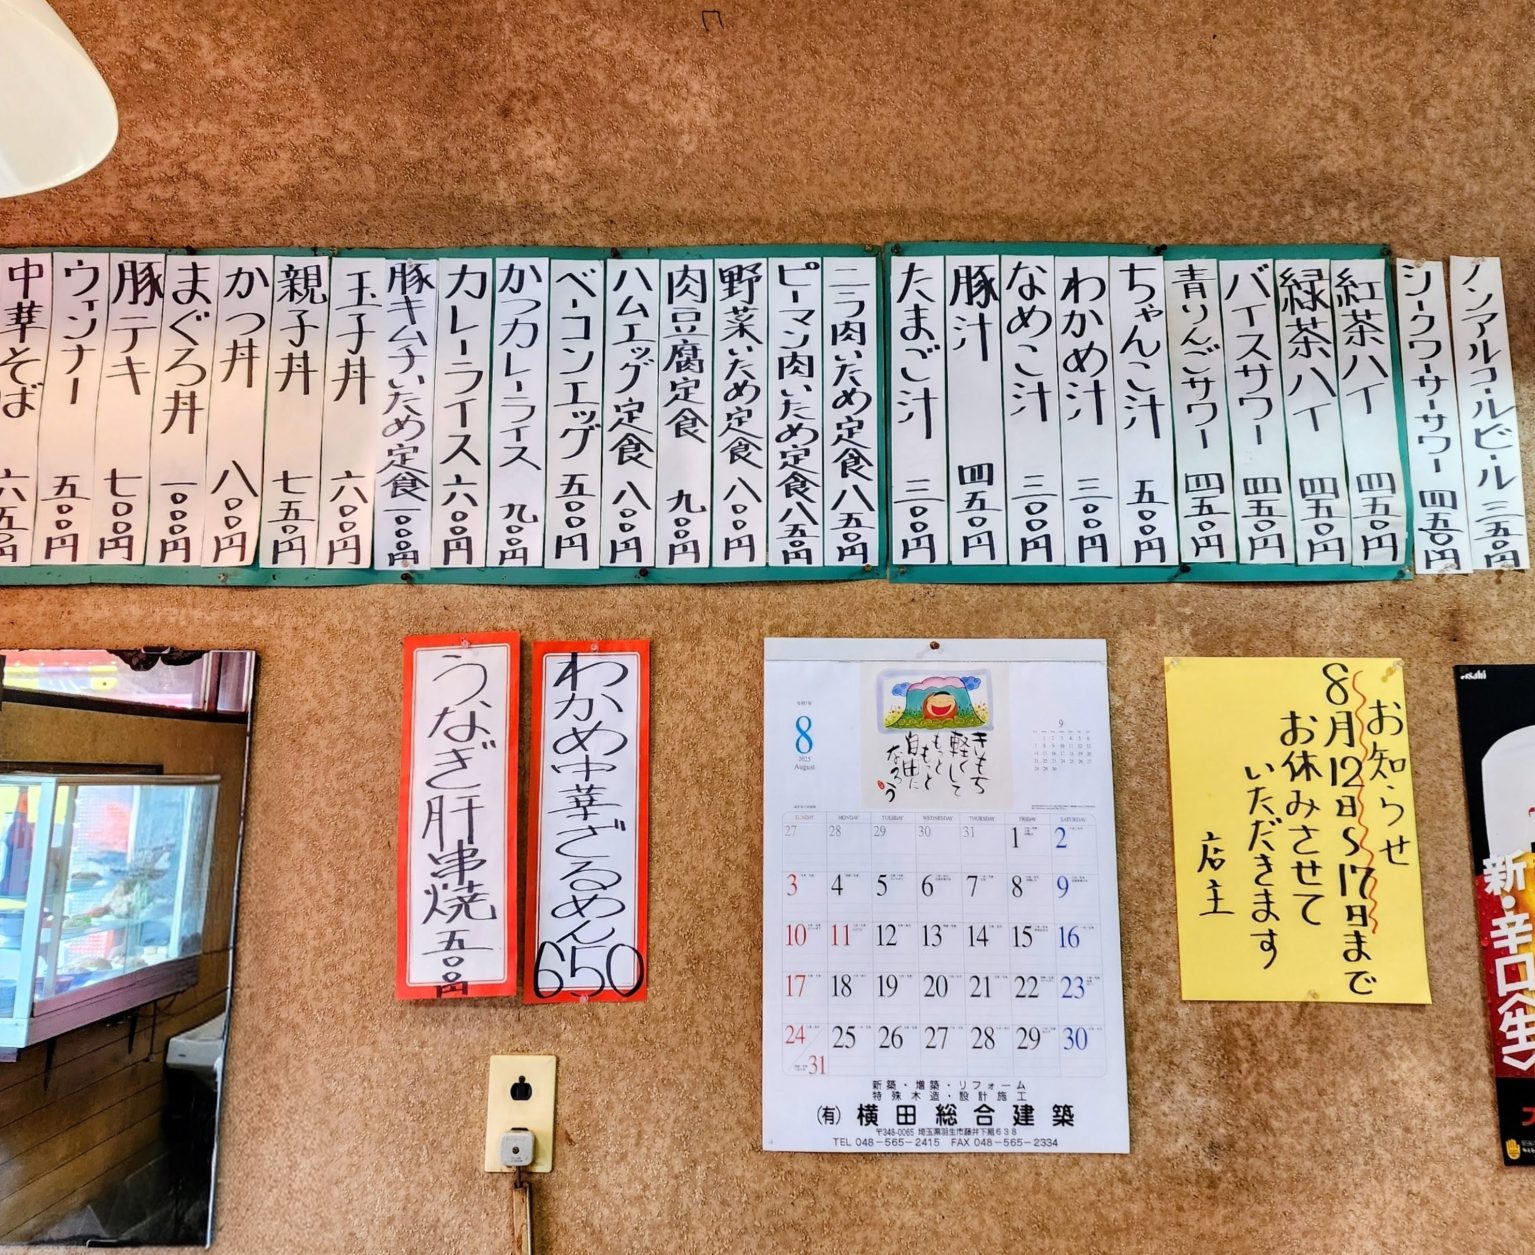 ノンアルコールビール 三五〇円
シークワーサーサワー 四五〇円
紅茶ハイ 四五〇円
緑茶ハイ 四五〇円
バイスサワー 四五〇円
青りんごサワー 四五〇円
ちゃんこ汁 五〇〇円
わかめ汁 三〇〇円
なめこ汁 三〇〇円
豚汁 四五〇円
たまご汁 三〇〇円
ニラ肉いため定食 八五〇円
ピーマン肉いため定食 八五〇円
野菜いため定食 八〇〇円
肉豆腐定食 九〇〇円
ハムエッグ定食 八〇〇円
ベーコンエッグ 五〇〇円
かつカレーライス 九〇〇円
カレーライス 六〇〇円
豚キムチいため定食 一〇〇〇円
玉子丼 六〇〇円
親子丼 七五〇円
かつ丼 八〇〇円
まぐろ丼 一〇〇〇円
豚テキ 七〇〇円
ウィンナー 五〇〇円
中華そば 六五〇円
わかめ中華ざるめん 650
うなぎ肝串焼 五〇〇円
8
2025
August
きもち
軽くして
もっと
もっと
自由に
なろう
9
SUNDAY MONDAY TUESDAY WEDNESDAY THURSDAY FRIDAY SATURDAY
27 28 29 30 31 1 2
3 4 5 6 7 8 9
10 11 12 13 14 15 16
17 18 19 20 21 22 23
24 25 26 27 28 29 30
31
新築・増築・リフォーム
特殊木造・設計施工
(有) 横田総合建築
〒348-0065 埼玉県羽生市藤井下組638
TEL 048-565-2415 FAX 048-565-2334
お知らせ
8月12日〜17日まで
お休みさせて
いただきます
店主
Asahi
新・辛口〈生〉